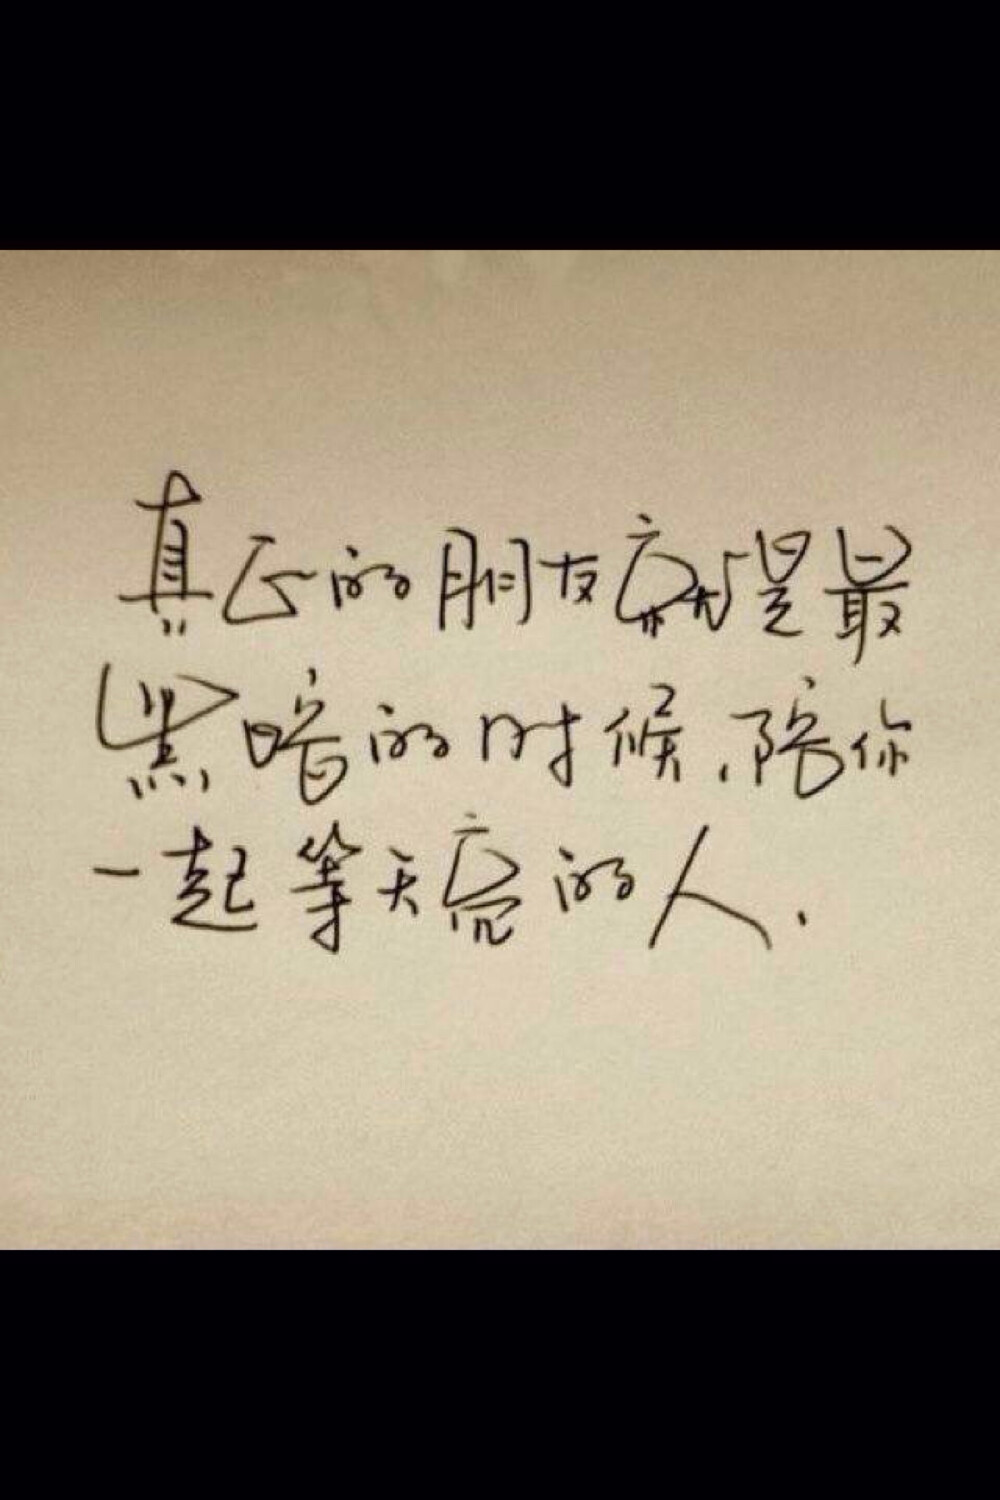 真正的朋友就是最
黑暗的时候,陪你
一起等天亮的人.